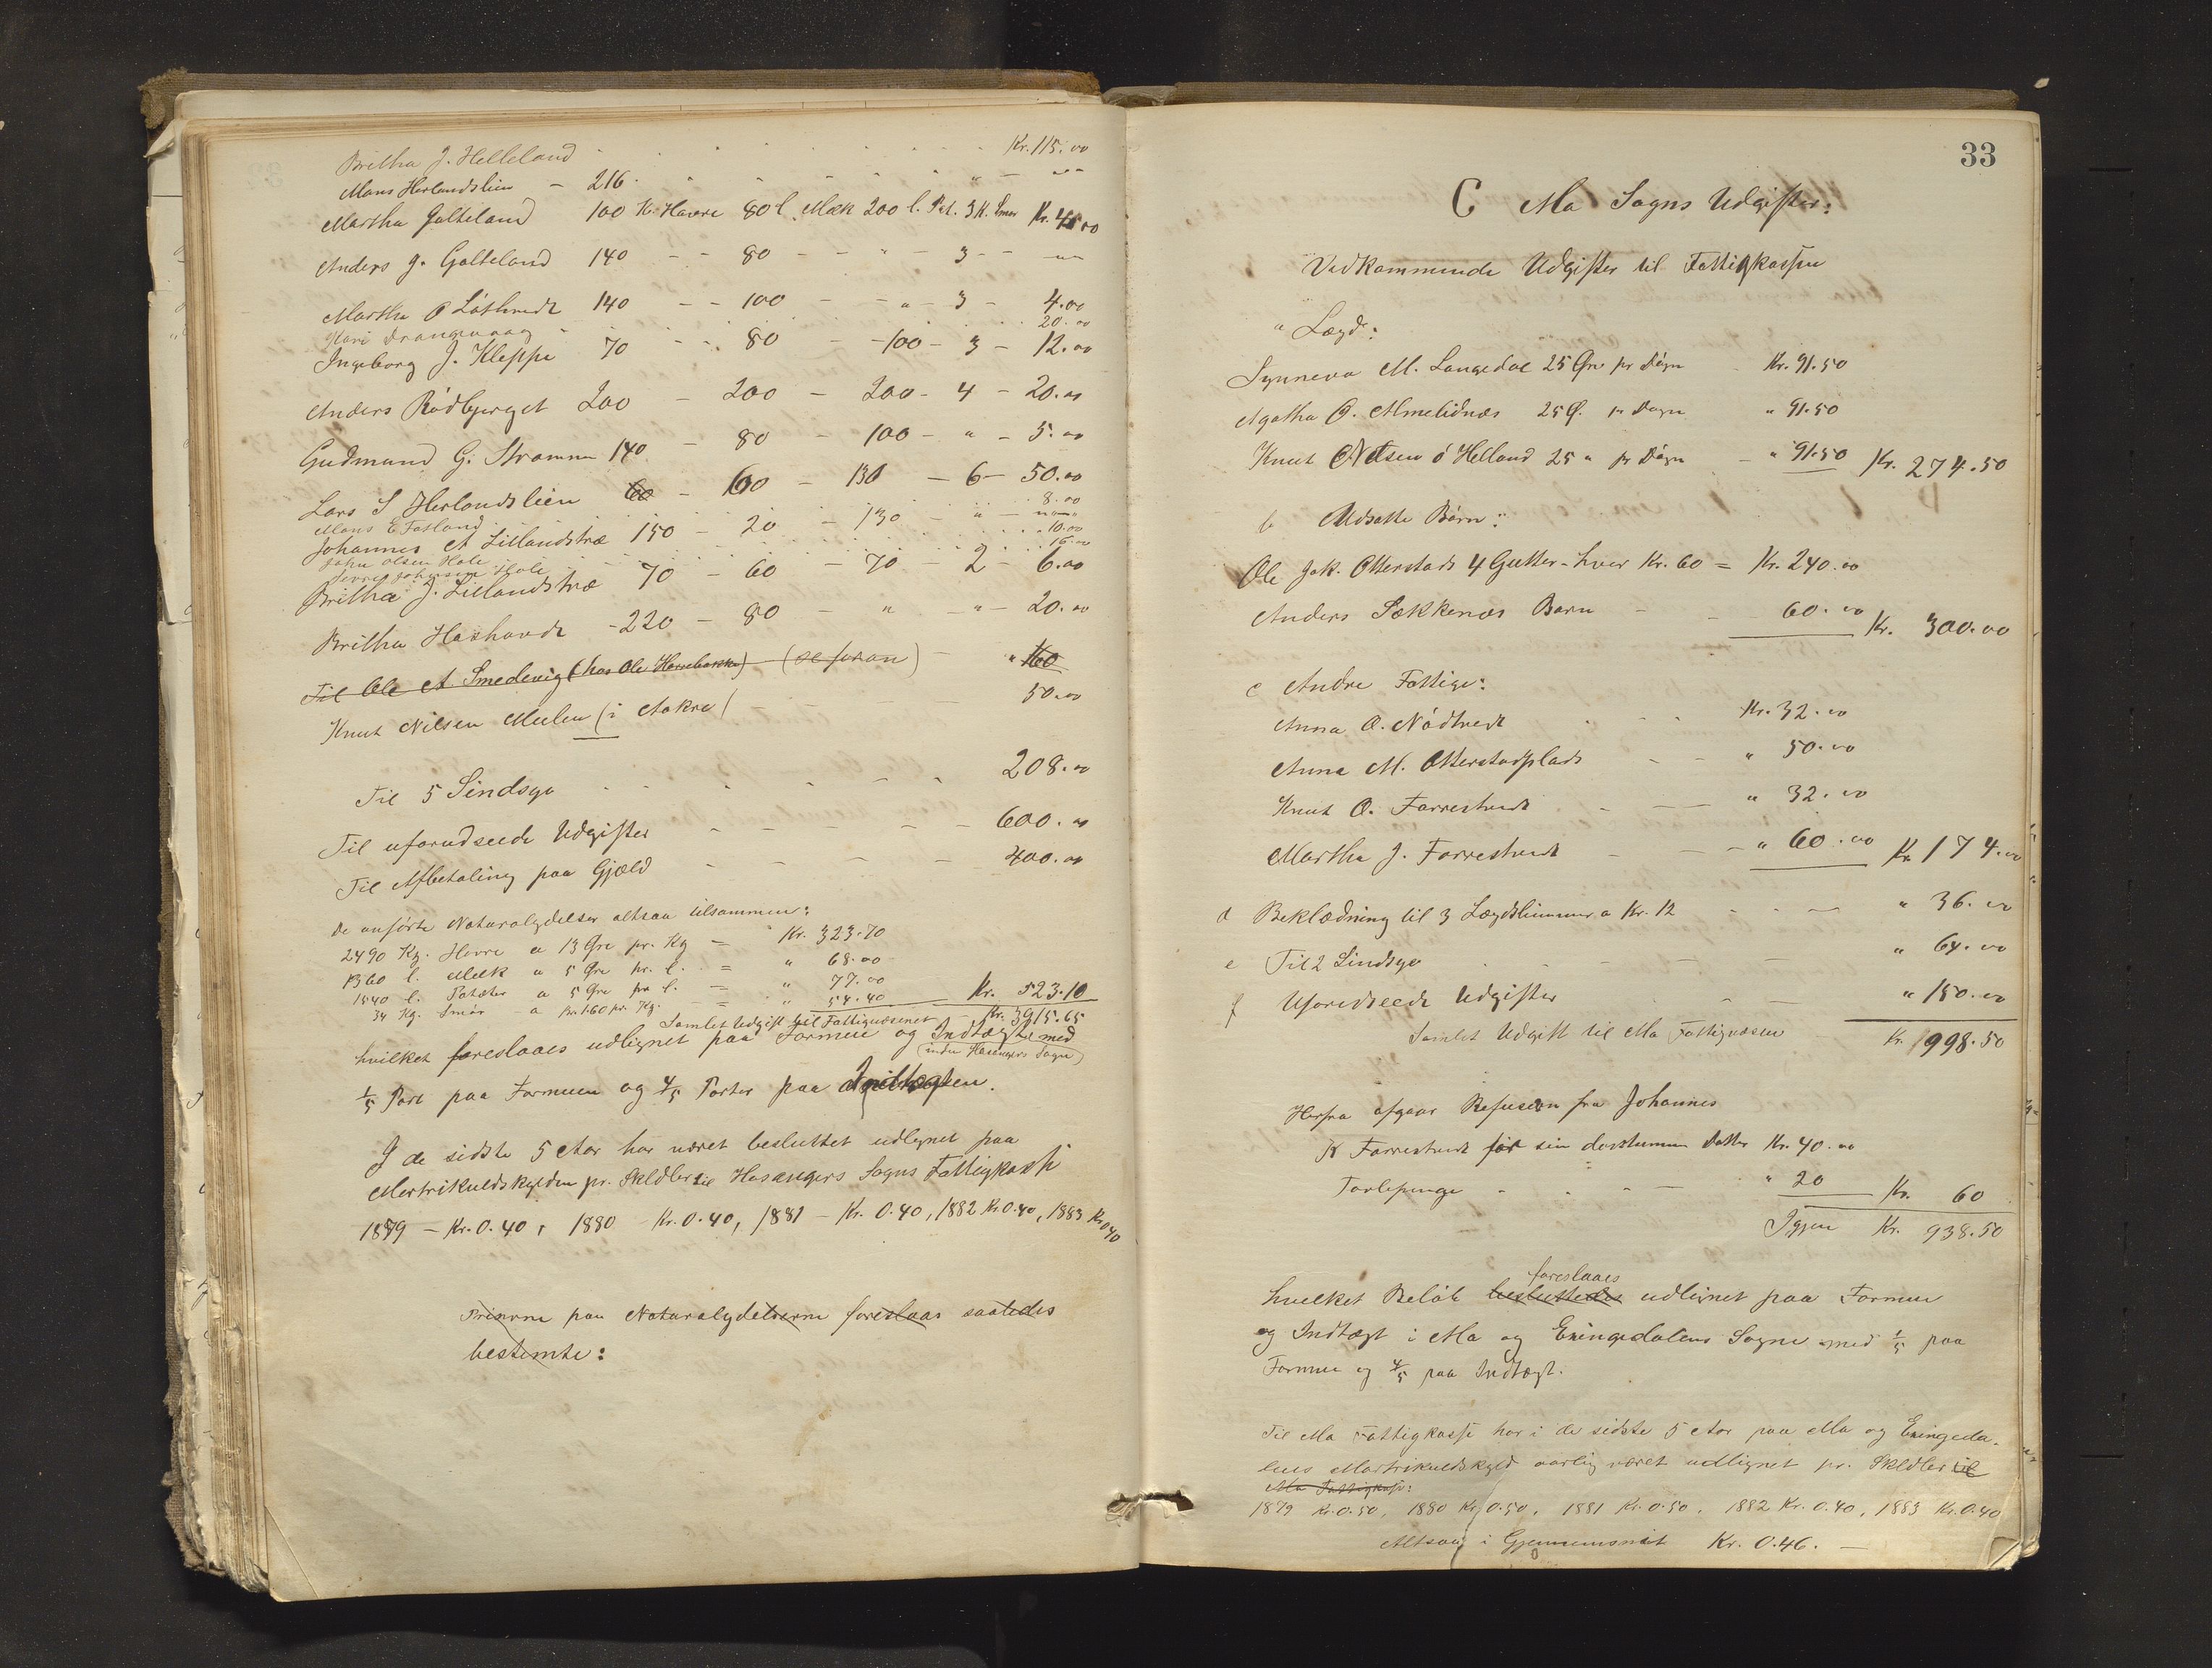 Britha J. Helleland Kr. 115.00
Mons Herlandslien - 216 " - " "
Martha Galteland 100 K. Havre 80 l. Mælk 200 l. Pot. 3 K. Smør Kr. 4.00
Anders J. Galteland 140 - - 80 - - " - 3 - - " "
Martha O 140 - - 100 - - " - 3 - 4.00
Kari Drangevaag 20.00
Ingeborg J. Kleppe 70 - - 80 - - 100 - 3 - 12.00
Anders Rödbjerget 200 - 200 - 200 - 4 - 20.00
Gudmund G. Strømme 140 - 80 - 100 - " - 5.00
Lars S Herlandslien 60 - 100 - 130 - 6 - 50.00
Mons E Fatland 8.00
Johannes A Lillandstræ 150 - 20 - 130 - " - " "
John Olsen Hole 10.00
Sjurr Johnsen Hole 16.00
Britha J. Lillandstræ 70 - 60 - 70 - 2 - 6.00
Britha Hashovde - 220 - 80 - " - " - 20.00
Til Ole A Smedevig (hos Ole ) (se foran) - " 160
Knut Nilsen Mulen (i Aakre) - - - 50.00
Til 5 Sindsyge 208.00
Til uforudseede Udgifter - - - - - 600.00
Til Afbetaling paa Gjæld - - - - 400.00
De anførte Naturalydelser altsaa tilsammen:
2490 Kg. Havre a 13 Øre pr. Kg = Kr. 323.70
1360 l. Mælk a 5 Øre pr. l. = " 68.00
1540 l. Poteter a 5 Øre pr l. = " 77.00
34 Kg. Smør - a Kr 1.60 pr. Kg. - = " 54.40 Kr. 523.10
Samlet Udgift til Fattigvæsenet - Kr. 3915.65
hvilket foreslaaes udlignet paa Formue og Indtægt med
(inden Hosangers Sogn)
1/5 Part paa Formuen og 4/5 Parter paa Indtægten.
I de sidste 5 Aar har været besluttet udlignet paa
Martrikulskylden pr. Skldler til Hosangers Sogns Fattigkasse
1879 - Kr. 0.40, 1880 Kr. 0.40, 1881 - Kr. 0.40, 1882 Kr 0.40, 1883 Kr 0 40
Priserne paa Naturalydelserne foreslaas saaledes
bestemte:
33
C Mo Sogns Udgifter:
Vedkommende Udgifter til Fattigkassen
a Lægd:
Synneva M. Langedal 25 Øre pr Døgn Kr. 91.50
Agatha O. Almelidnæs 25 Ø. pr Døgn " 91.50
Knut Nilsen ö Helland 25 " pr Døgn - " 91.50 Kr. 274.50
b Udsatte Børn:
Ole Jak. Otterstads 4 Gutter - hver Kr. 60 = Kr. 240.00
Anders Sækkenæs Barn - - 60.00 Kr. 300.00
c Andre Fattige:
Anna O. Nödtvedt Kr. 32.00
Anna M. Otterstadplads - - " 50.00
Knut O. Farrestvedt - - - " 32.00
Martha J. Farrestvedt - - - " 60.00 Kr 174.00
d Beklædning til 3 Lægdslemmer a Kr. 12 - - - " 36.00
e Til 2 Sindsyge - - - - " 64.00
f Uforudseede Udgifter " 150.00
Samlet Udgift til Mo Fattigvæsen - Kr. 998.50
Herfra afgaar Refusion fra Johannes
K Farrestvedt for sin døvstumme Datter Kr. 40.00
Tørlepenge - - - - " 20 Kr. 60
Igjen Kr. 938.50
foreslaaes
hvilket Beløb besluttedes udlignet paa Formue
og Indtægt i Mo og Exingedalens Sogne med 1/5 paa
Formue og 4/5 paa Indtægt.
Til Mo Fattigkasse har i de sidste 5 Aar paa Mo og Exingeda-
lens Martrikulskyld aarlig været udlignet pr. Skldler til
Mo Fattigkasse:
1879 Kr. 0.50, 1880 Kr. 0.50, 1881 Kr. 0.50, 1882 Kr. 0.40, 1883 Kr. 0.40
Altsaa i Gjennemsnit Kr. 0.46. -